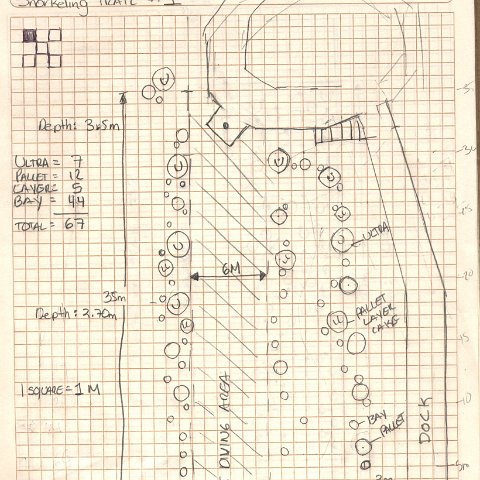 Snorkeling TRAIL #1
Depth: 3.65m
ULTRA = 7
PALLET = 12
LAYER = 5
BAY = 44
TOTAL = 67
6M
ULTRA
35m
Depth: 3.70m
PALLET
LAYER
CAKE
1 SQUARE = 1 M
DIVING AREA
BAY
PALLET
DOCK
20
15
10
5m